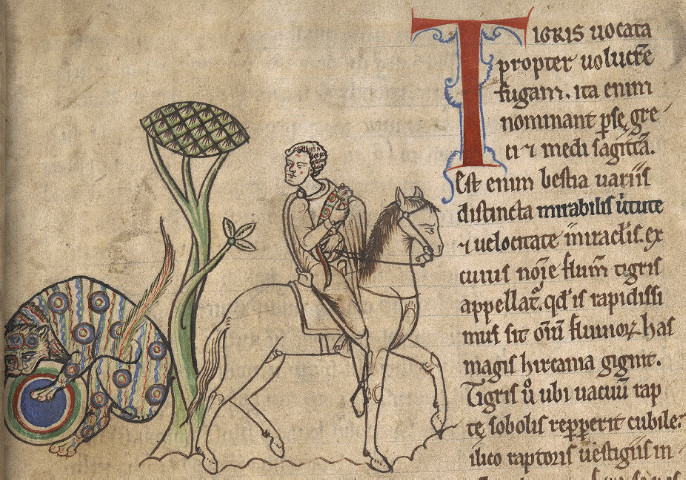 TIGRIS uocata
propter uolucrē
fugam. ita enim
nominant pſe, gre
ti ⁊ medi ſagittā.
Eſt enim beſtia uariiſ
diſtincta mirabiliſ uirtute
⁊ uelocitate
cuiuſ noīe flum̄ tigriſ
appellat᷑. qd̓ iſ rapidiſſi
muſ ſit om̄iū fluuioꝝ haſ
magiſ hircania gignit.
Tigriſ ubi uacuū rap
tę ſoboliſ repperit cubile.
ilico raptoriſ ueſtigiiſ in